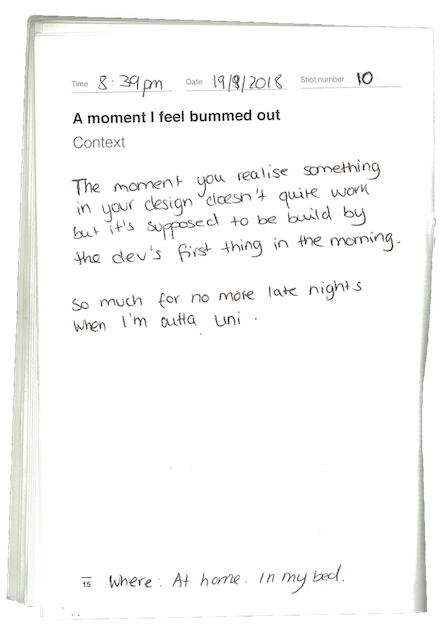 Time 8:39pm Date 19/9/2018 Shot number 10
A moment I feel bummed out
Context
The moment you realise something
in your design doesn't quite work
but it's supposed to be build by
the dev's first thing in the morning.
So much for no more late nights
when I'm outta uni.
15 Where: At home. In my bed.